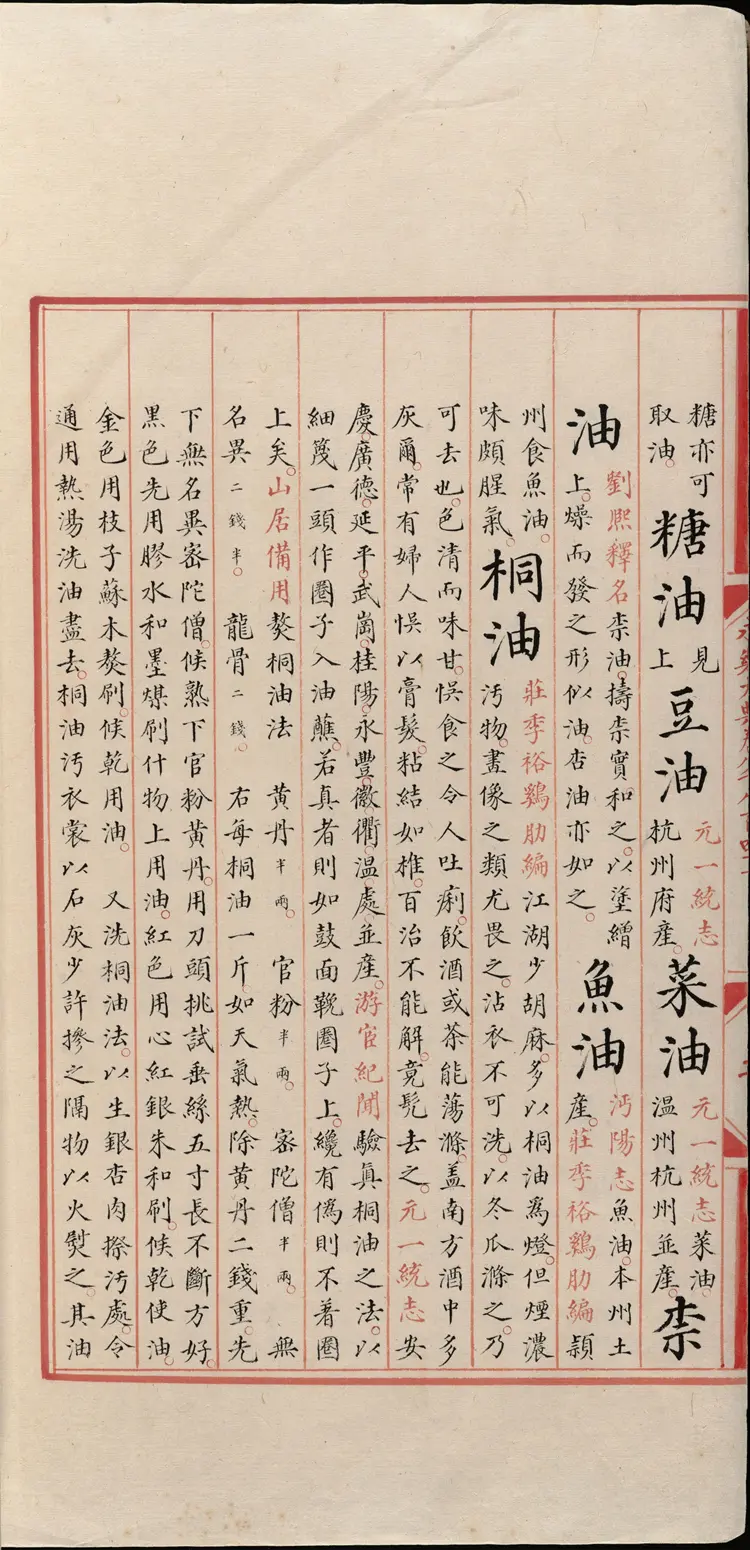 糖亦可
取油。
糖油
見
上
豆油
元一統志
杭州府産。
菜油
元一統志菜油。
温州杭州並産。
柰
油
劉熙釋名柰油。擣柰實和之。以塗繒
上。燥而發之形似油。杏油亦如之。
魚油
沔陽志魚油。本州土
産。莊季裕鷄肋編潁
州食魚油。
味頗腥氣。
桐油
莊季裕鷄肋編江湖少胡麻。多以桐油爲燈。但煙濃
汚物。畫像之類尤畏之。沾衣不可洗。以冬瓜滌之。乃
可去也。色清而味甘。悞食之令人吐痢。飲酒或茶能蕩滌。蓋南方酒中多
灰爾。常有婦人悞以膏髮。粘結如椎。百治不能解。竟髡去之。元一統志安
慶。廣德。延平。武崗。桂陽。永豐。徽衢。温處並産。游宦紀聞驗眞桐油之法。以
細篾一頭作圈子入油蘸。若真者則如鼓面鞔圈子上。纔有僞則不著圈
上矣。山居備用熬桐油法 黄丹半兩。 官粉半兩。 宻陀僧半兩。 無
名異二錢半。 龍骨二錢。 右每桐油一斤。如天氣熱。除黄丹二錢重。先
下無名異宻陀僧。候熟下官粉黄丹。用刀頭挑試垂絲五寸長不斷方好。
黒色先用膠水和墨煤刷什物上用油。紅色用心紅銀朱和刷。候乾使油。
金色用枝子蘇木熬刷。候乾用油。 又洗桐油法。以生銀杏肉擦汚處。令
通用熱湯洗油盡去。桐油汚衣裳以石灰少許摻之隔物以火熨之。其油